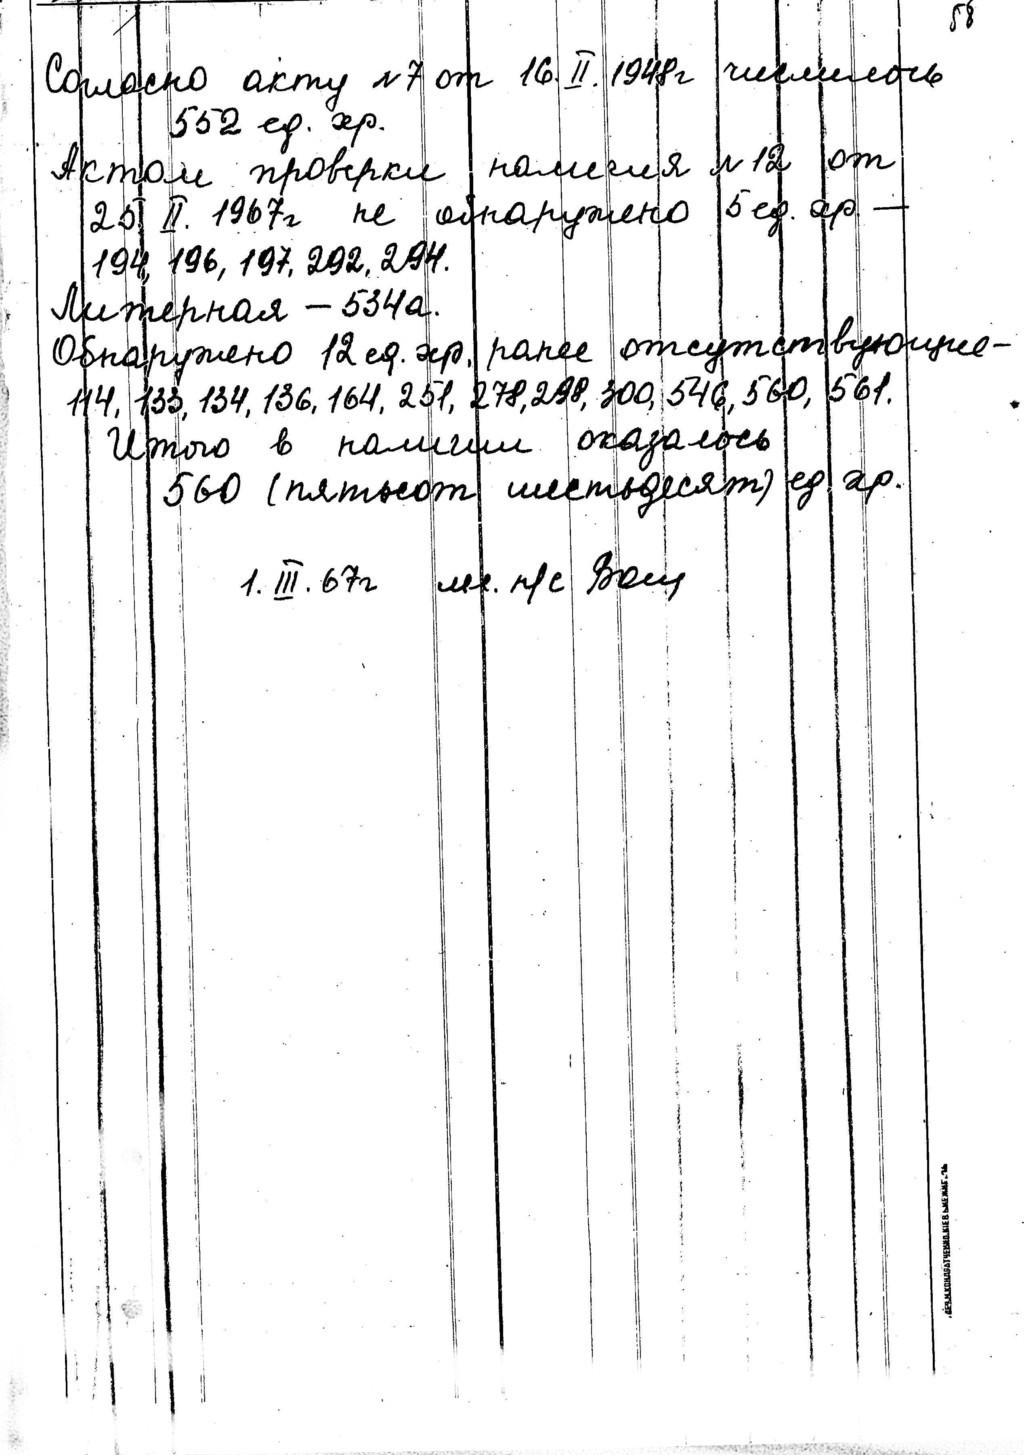 58
Согласно акту №7 от 16.II.1948г числилось
552 ед. хр.
Актом проверки наличия №12 от
25.II.1967г не обнаружено 5 ед. хр. —
194, 196, 197, 292, 294.
Литерная – 534а.
Обнаружено 12 ед. хр. ранее отсутствующие –
114, 133, 134, 136, 164, 251, 278, 298, 300, 546, 560, 561.
Итого в наличии оказалось
560 (пятьсот шестьдесят) ед. хр.
1.III.67г мл. н/с